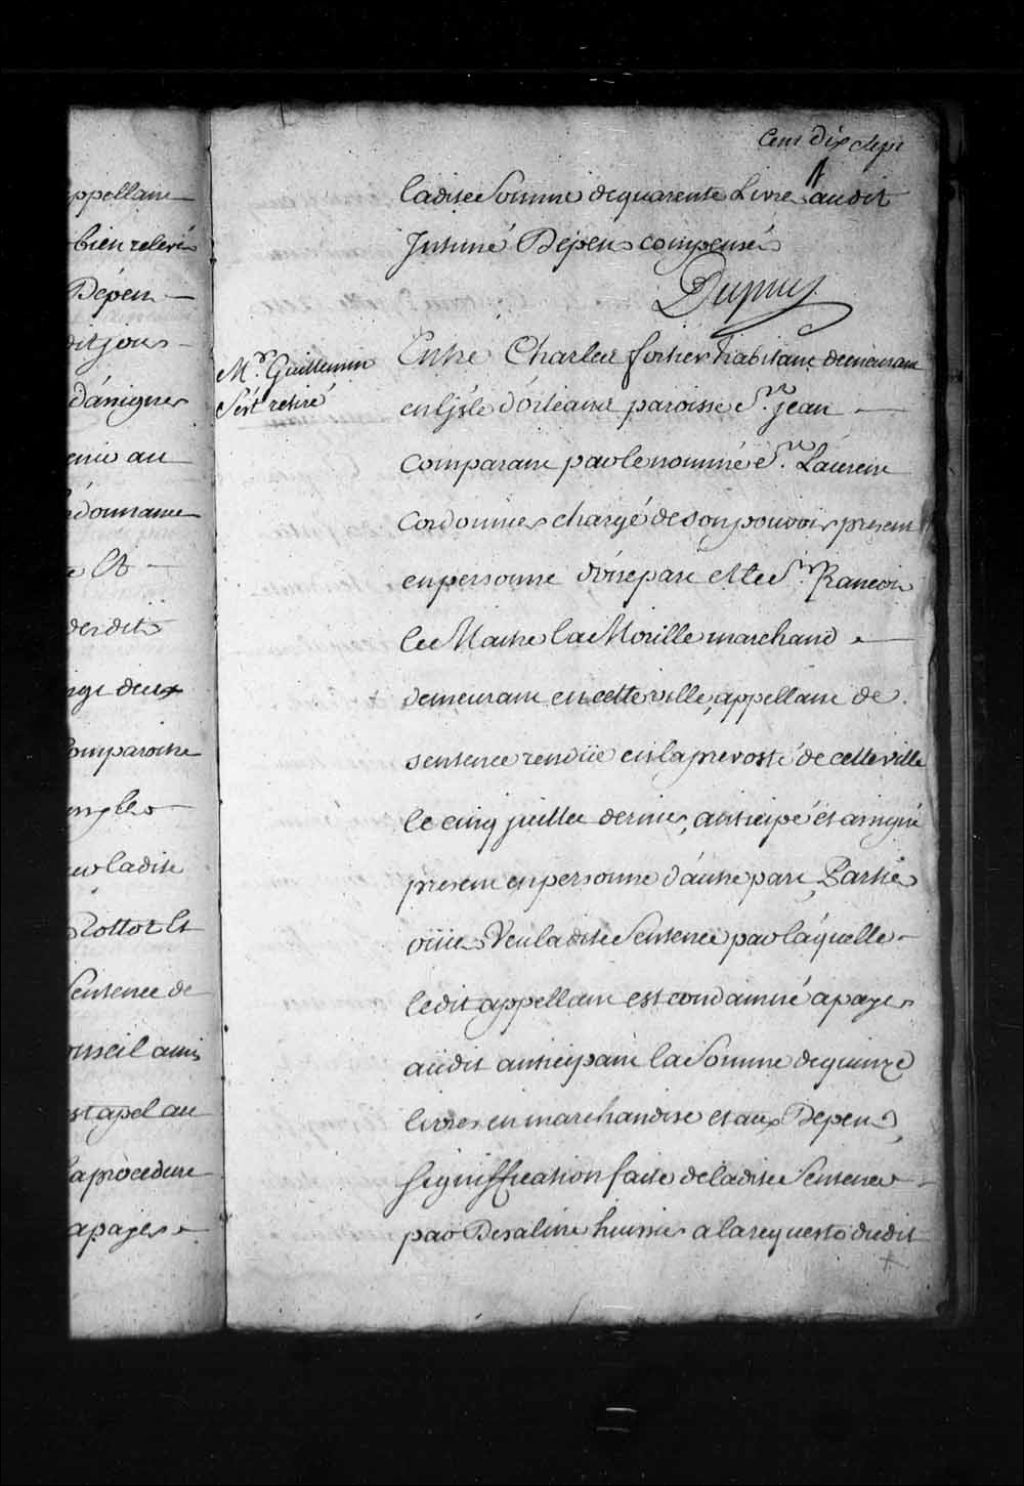 Cent dix Sept
appellant
bien relevé
Dépens
dit jour
d'assigner
enir au
donnance
Et
desdits
deux
Comparoitre
ladite
Sentence de
Conseil a mis
et apel au
la procedure
a payer
Mr. Guillemin
S'est retiré
ladite Somme de quarente Livres audit
Intimé Dépens compensés
Dupuy
Entre Charles fortier habitant demeurant
en l'jsle d'orleans paroisse St. jean
Comparant par le nommé St. Laurent
Cordonnier chargé de son pouvoir present
en personne d'une part et le Sr. Francois
le Maitre la Morille marchand
demeurant en cette ville, appellant de
sentence rendüe en la prevosté de cette ville
le cinq juillet dernier, anticipé et assigné
present en personne d'autre part, Parties
oüies Veu la dite Sentence par laquelle
ledit appellant est condamné a payer
audit anticipant la Somme de quinze
livres en marchandise et aux Depens,
signiffication faite de ladite Sentence
par Desaline huissier a la requeste dudit